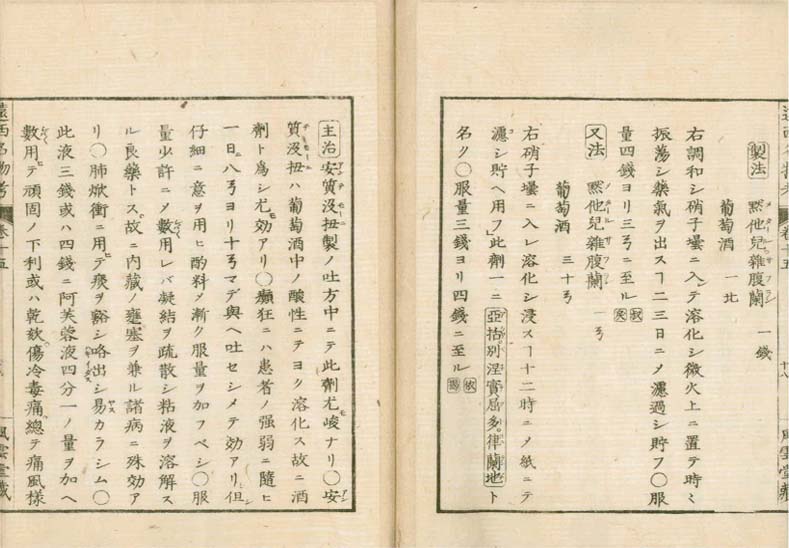 製法 黙他兒雜腹蘭 一錢
葡萄酒 一北
右調和シ硝子壜ニ入テ溶化シ微火上ニ置テ時々
振蕩シ藥氣ヲ出スヿ二三日ニメ濾過シ貯フ○服
量四錢ヨリ三ヲニ至ル
又法 黙他兒雜腹蘭 一ヲ
葡萄酒 三十ヲ
右硝子壜ニ入レ溶化シ浸スヿ十二時ニメ紙ニテ
濾シ貯ヘ用フ」此劑一ニ亞括別涅實屈多。律蘭地ト
名ク○服量三錢ヨリ四錢ニ至ル
風雲堂藏
主治 安質没扭製ノ吐方中ニテ此劑尤峻ナリ○安
質没扭ハ葡萄酒中ノ酸性ニテヨク溶化ス故ニ酒
劑ト爲シ尤効アリ○癲狂ニハ患者ノ强弱ニ隨ヒ
一日ニ八ヲヨリ十ヲマデ與ヘ吐セシメテ効アリ但
仔細ニ意ヲ用ヒ酌料メ漸ク服量ヲ加フベシ○服
量少許ニメ數用レバ凝結ヲ疏散シ粘液ヲ溶解ス
ル良藥トス。故ニ内藏ノ壅塞ヲ兼ル諸病ニ殊効ア
リ○肺焮衝ニ用テ痰ヲ豁シ咯出シ易カラシム○
此液三錢或ハ四錢ニ阿芙蓉液四分一ノ量ヲ加ヘ
數用テ頑固ノ下利或ハ乾欬。傷冷毒痛。總テ痛風様
遠西名物考 卷十五
風雲堂藏